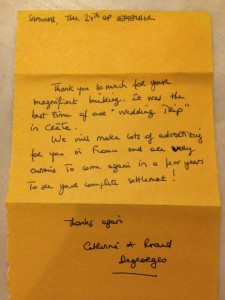 SAMARIA, THE 24TH OF SEPTEMBER
Thank you so much for your
magnificent building.. It was the
best time of our "wedding Trip"
in Crète.
We will make lots of advertizing
for you in France and are very
to come again in a few years
To see your complete settlement!
Thanks again
Catherine & Renaud
Degeorges